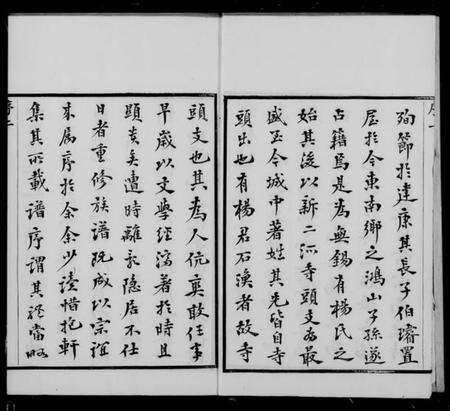 殉節於建康其長子伯璿置
屋於今東南鄉之鴻山子孫遂
占籍焉是為無錫有楊氏之
始其後以新二河寺頭支為最
盛至今城中著姓其先皆自寺
頭出也有楊君石漁者故寺
頭支也其為人伉爽敢任事
早歲以文學經濟著於時且
顯矣美遭時離亂隱居不仕
日者重修族譜既成以宗誼
來屬序於余余少讀惜抱軒
集其所載譜序謂其徑當略
序二